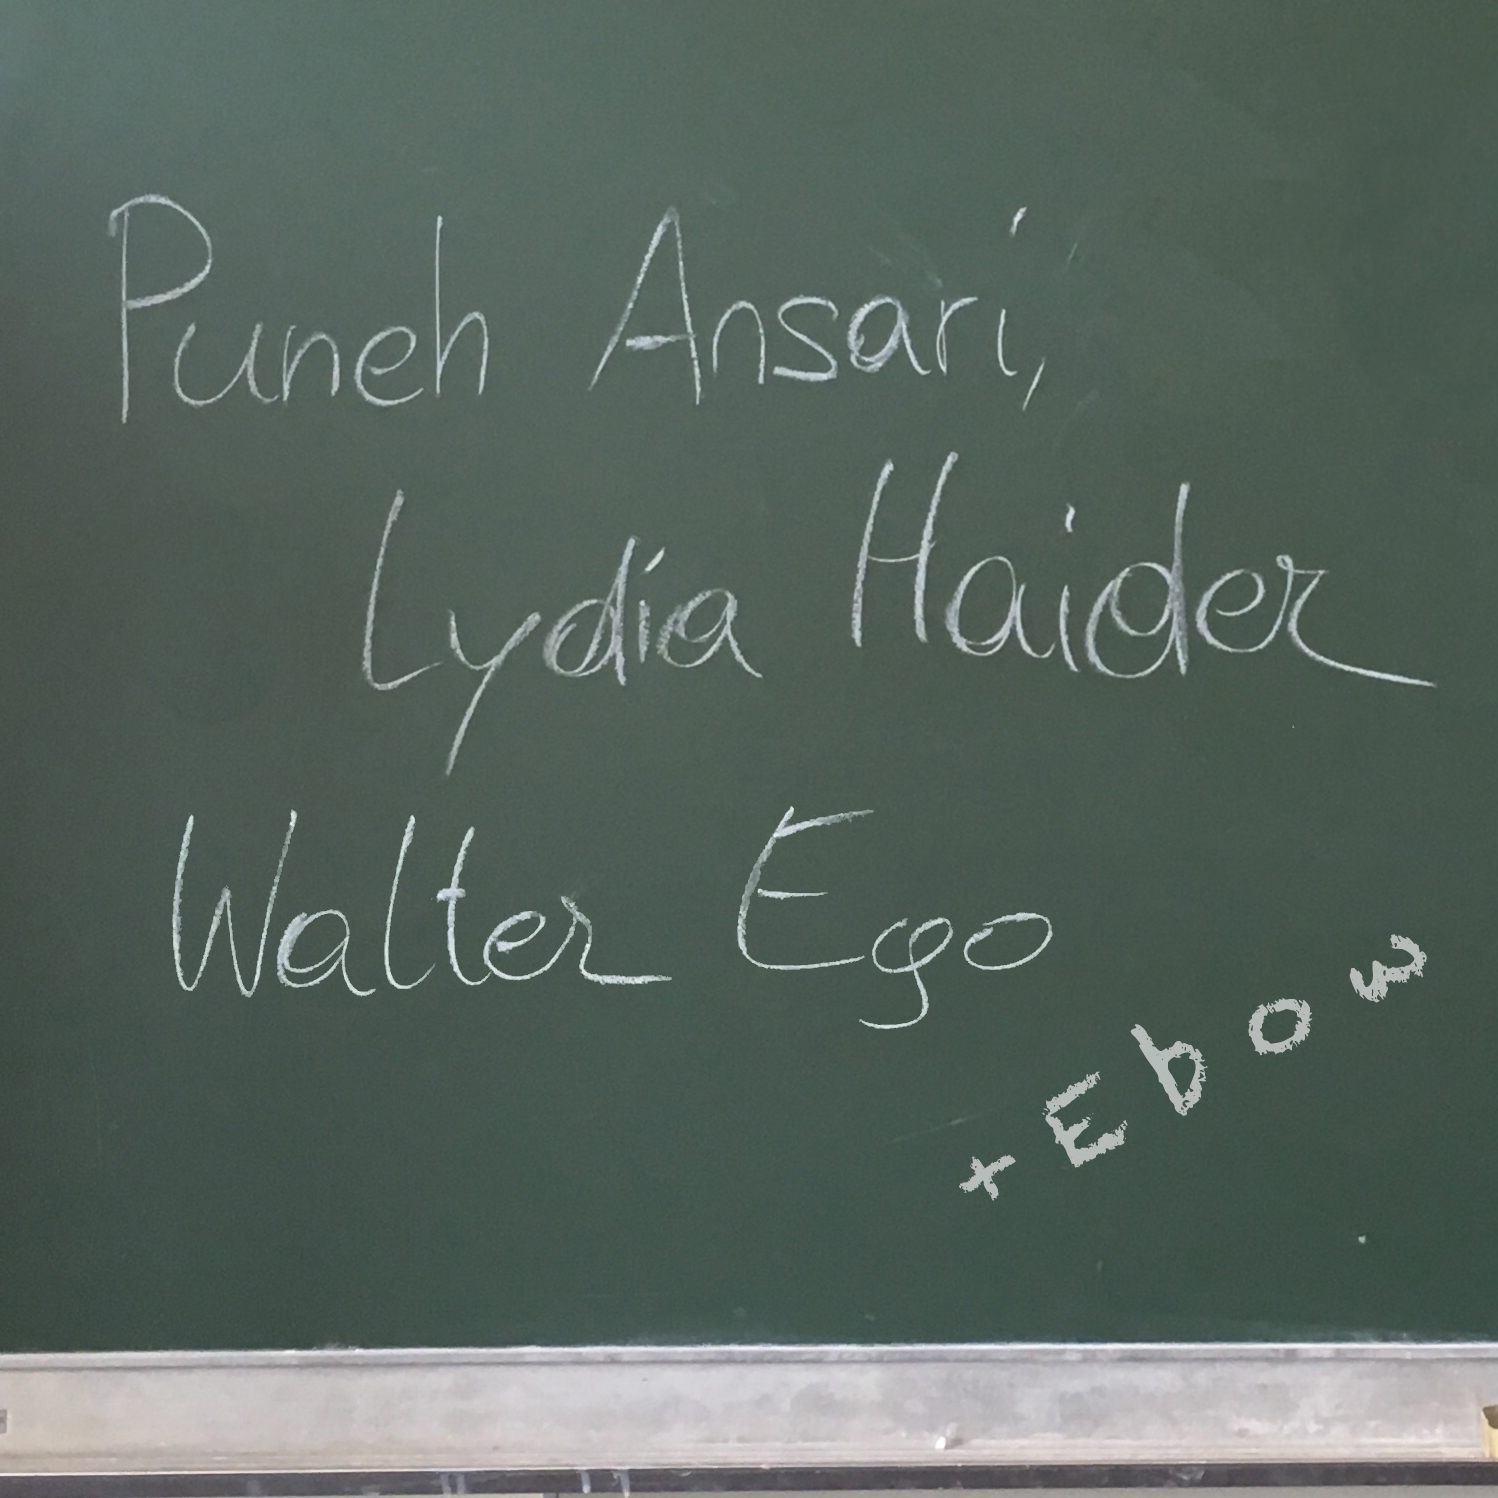 Puneh Ansari,
Lydia Haider
Walter Ego
+ Ebow